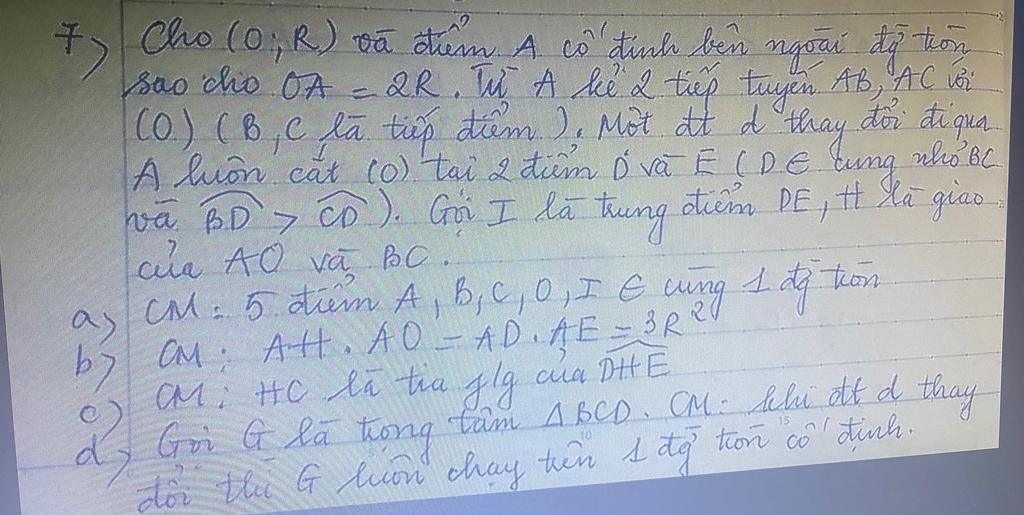 7) Cho (O; R) và điểm A cố định bên ngoài đg tròn
sao cho OA = 2R. Từ A kẻ 2 tiếp tuyến AB, AC với
(O) (B, C là tiếp điểm). Một đt d thay đổi đi qua
A luôn cắt (O) tại 2 điểm D và E (D ∈ cung nhỏ BC
và BD > CD). Gọi I là trung điểm DE, H là giao
của AO và BC.
a) CM: 5 điểm A, B, C, O, I ∈ cùng 1 đg tròn
b) CM: AH. AO = AD. AE = 3R²
c) CM: HC là tia p/g của DHE
d) Gọi G là trọng tâm ΔBCD. CM: khi đt d thay
đổi thì G luôn chạy trên 1 đg tròn cố định.